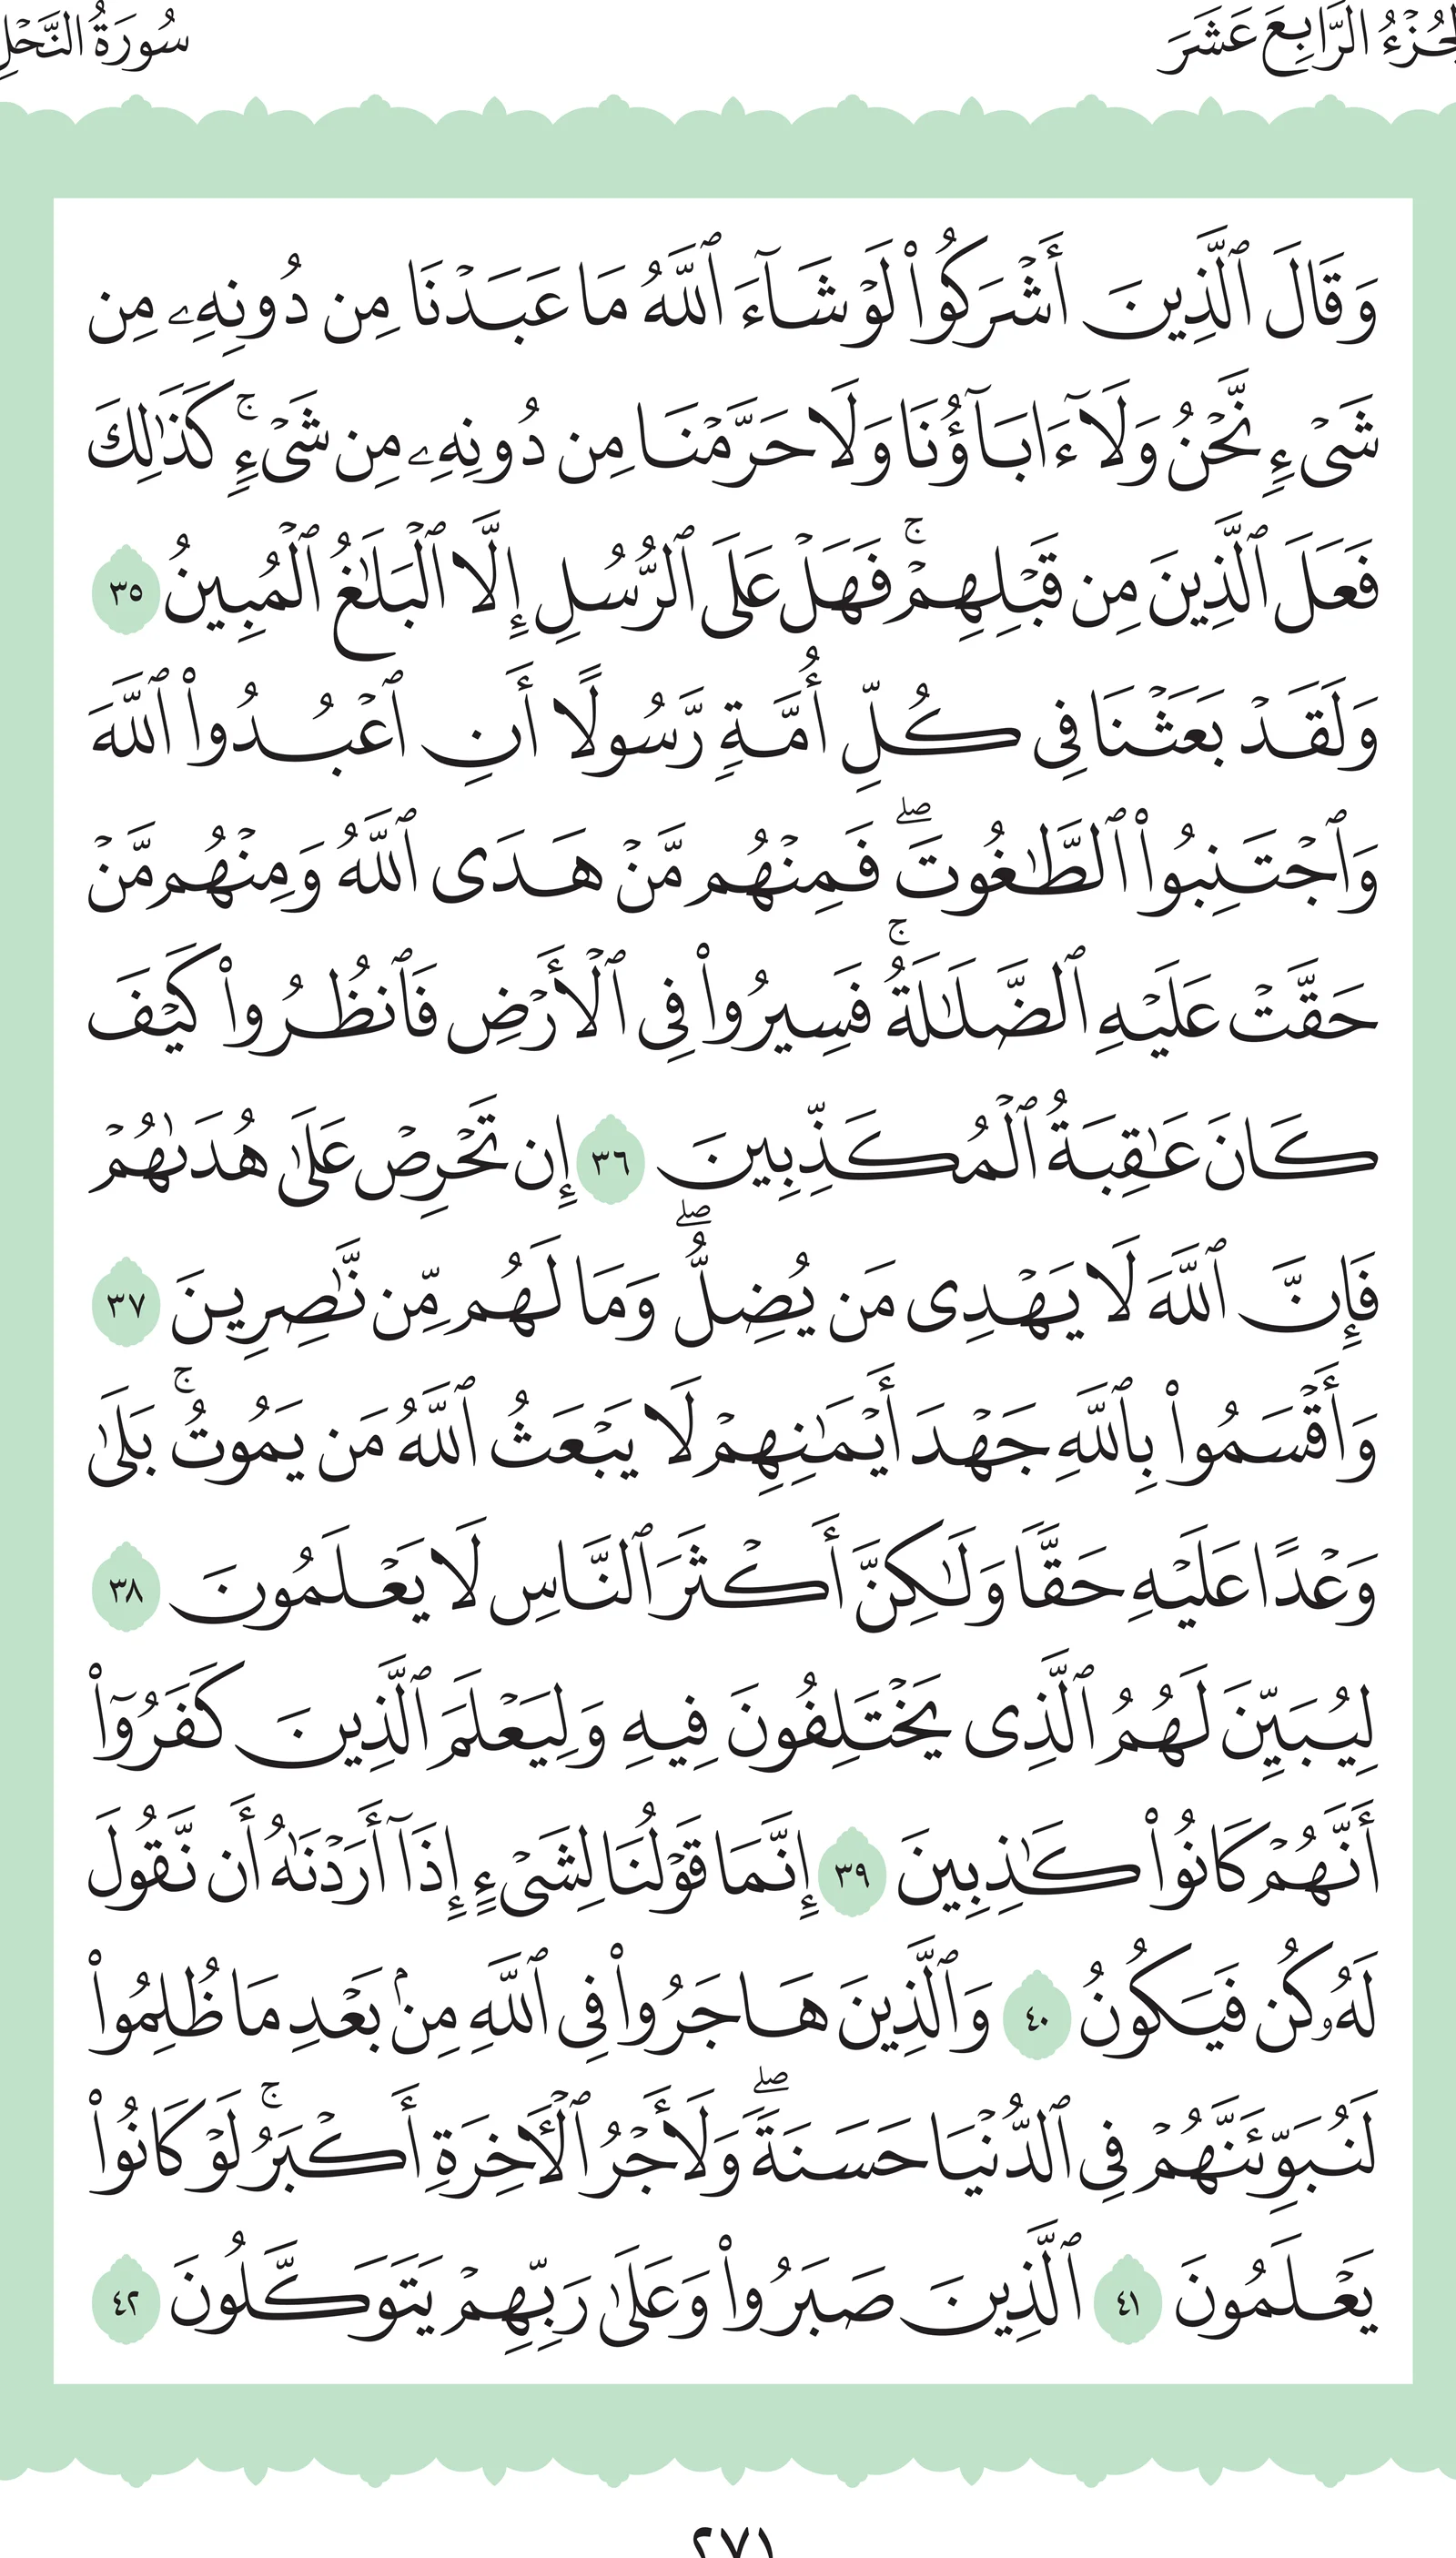 الجُزْءُ الرَّابِعَ عَشَرَ سُورَةُ النَّحْلِ
وَقَالَ ٱلَّذِينَ أَشْرَكُوا۟ لَوْ شَآءَ ٱللَّهُ مَا عَبَدْنَا مِن دُونِهِۦ مِن
شَىْءٍ نَّحْنُ وَلَآ ءَابَآؤُنَا وَلَا حَرَّمْنَا مِن دُونِهِۦ مِن شَىْءٍ ۚ كَذَٰلِكَ
فَعَلَ ٱلَّذِينَ مِن قَبْلِهِمْ ۚ فَهَلْ عَلَى ٱلرُّسُلِ إِلَّا ٱلْبَلَـٰغُ ٱلْمُبِينُ ٣٥
وَلَقَدْ بَعَثْنَا فِى كُلِّ أُمَّةٍ رَّسُولًا أَنِ ٱعْبُدُوا۟ ٱللَّهَ
وَٱجْتَنِبُوا۟ ٱلطَّـٰغُوتَ ۖ فَمِنْهُم مَّنْ هَدَى ٱللَّهُ وَمِنْهُم مَّنْ
حَقَّتْ عَلَيْهِ ٱلضَّلَـٰلَةُ ۚ فَسِيرُوا۟ فِى ٱلْأَرْضِ فَٱنظُرُوا۟ كَيْفَ
كَانَ عَـٰقِبَةُ ٱلْمُكَذِّبِينَ ٣٦ إِن تَحْرِصْ عَلَىٰ هُدَىٰهُمْ
فَإِنَّ ٱللَّهَ لَا يَهْدِى مَن يُضِلُّ ۖ وَمَا لَهُم مِّن نَّـٰصِرِينَ ٣٧
وَأَقْسَمُوا۟ بِٱللَّهِ جَهْدَ أَيْمَـٰنِهِمْ لَا يَبْعَثُ ٱللَّهُ مَن يَمُوتُ ۚ بَلَىٰ
وَعْدًا عَلَيْهِ حَقًّا وَلَـٰكِنَّ أَكْثَرَ ٱلنَّاسِ لَا يَعْلَمُونَ ٣٨
لِيُبَيِّنَ لَهُمُ ٱلَّذِى يَخْتَلِفُونَ فِيهِ وَلِيَعْلَمَ ٱلَّذِينَ كَفَرُوٓا۟
أَنَّهُمْ كَانُوا۟ كَـٰذِبِينَ ٣٩ إِنَّمَا قَوْلُنَا لِشَىْءٍ إِذَآ أَرَدْنَـٰهُ أَن نَّقُولَ
لَهُۥ كُن فَيَكُونُ ٤٠ وَٱلَّذِينَ هَاجَرُوا۟ فِى ٱللَّهِ مِنۢ بَعْدِ مَا ظُلِمُوا۟
لَنُبَوِّئَنَّهُمْ فِى ٱلدُّنْيَا حَسَنَةً ۖ وَلَأَجْرُ ٱلْـَٔاخِرَةِ أَكْبَرُ ۚ لَوْ كَانُوا۟
يَعْلَمُونَ ٤١ ٱلَّذِينَ صَبَرُوا۟ وَعَلَىٰ رَبِّهِمْ يَتَوَكَّلُونَ ٤٢
٢٧١